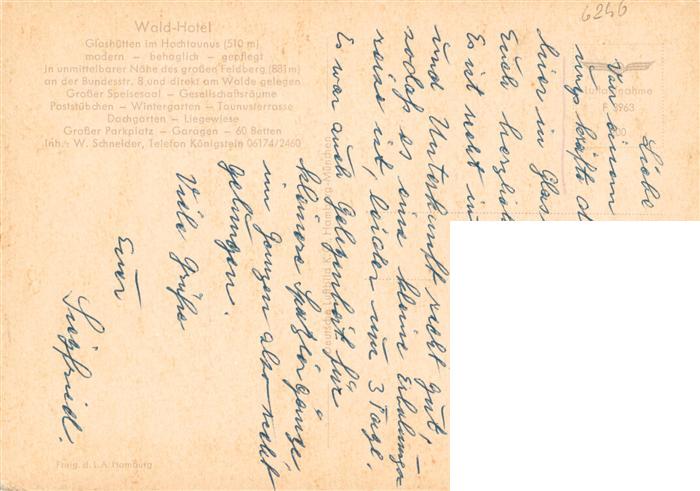 Wald-Hotel
Glashütten im Hochtaunus (510 m)
modern – behaglich – gepflegt
in unmittelbarer Nähe des großen Feldberg (881 m)
an der Bundesstr. 8 und direkt am Walde gelegen
Großer Speisesaal – Gesellschaftsräume
Poststübchen – Wintergarten – Taunusterrasse
Dachgarten – Liegewiese
Großer Parkplatz – Garagen – 60 Betten
Inh.: W. Schneider, Telefon Königstein 06174/2460
6246
Liebe
Von einem
hier in Glas
Euch herzlich
Es ist nett
und Unterkunft recht gut, –
sodaß es eine kleine Erholungs
reise ist, leider nur 3 Tage.
Es war auch Gelegenheit für
kleinere Spaziergänge,
im Ganzen also recht
gelungen.
Viele Grüße
Euer
Siegfried.
Deutsche Luftbild K.G. Hamburg-München
Freig. d. L.A. Hamburg